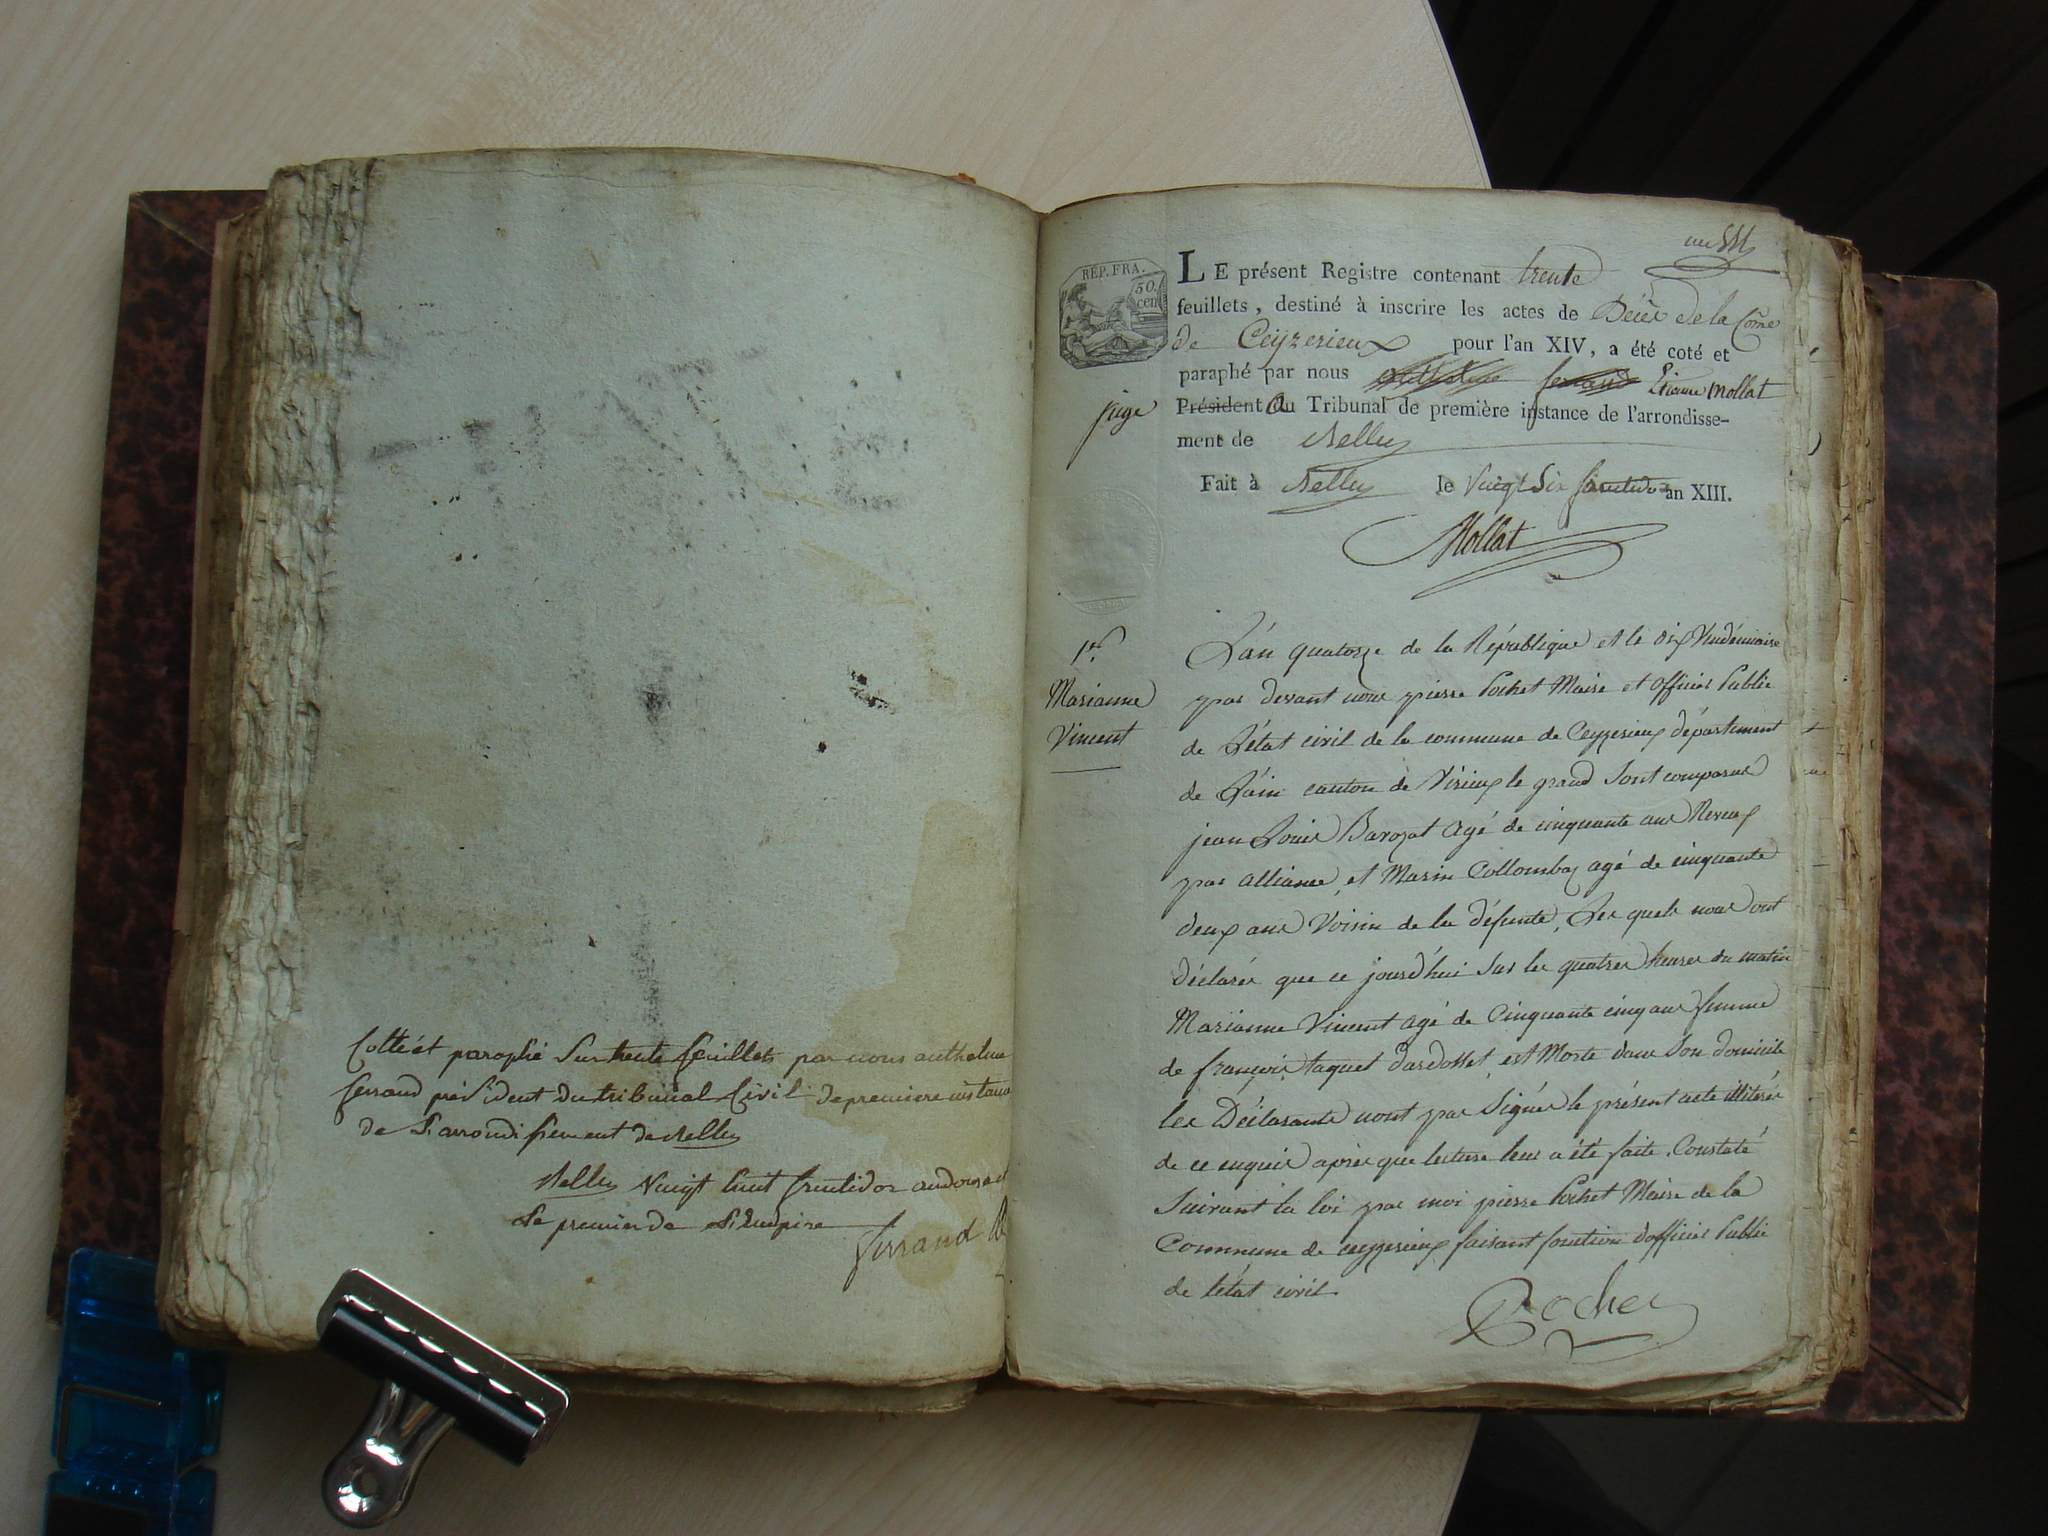 Cotté et paraphé Sur trente feuillets par nous anthelme
ferrand président du tribunal Civil de premiere instance
de L'arrondissement de Belley
Belley vingt huit fructidor an douze et
Le premier de L'Empire
ferrand
LE présent Registre contenant trente
feuillets, destiné à inscrire les actes de Décès de la Cõne
de Ceyzerieux pour l'an XIV, a été coté et
paraphé par nous Etienne Mollat
juge Président Du Tribunal de première instance de l'arrondisse-
ment de Belley
Fait à Belley le vingt Six fructidor an XIII.
Mollat
REP. FRA.
50.
cen
1er.
Marianne
Vincent
L'án quatorze de la République et le dix Vendémiaire
par devant nous pierre Pochet Maire et officier Public
de L'état civil de la commune de Ceyzerieux département
de L'áin canton de Virieux le grand Sont comparus
jean Louis Barozat agé de cinquante ans Neveux
par alliance, et Marin Collombaz agé de cinquante
deux ans Voisin de la défunte, Les quels nous ont
déclarés que ce jourd'hui Sur les quatres heures du matin
Marianne Vincent agé de Cinquante cinq ans femme
de françois taquet d'ardosset, est Morte dans Son domicile
les Déclarants n'ont pas Signés le présent acte illitérés
de ce enquis après que lecture leur a été faite. Constaté
Suivant la loi par moi pierre Pochet Maire de la
Commune de ceyzerieux faisant fonction d'officier Public
de l'état civil.
Pochet